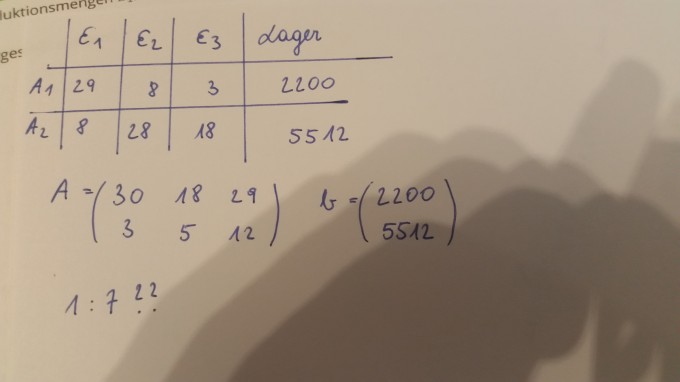 luktionsmengen
ges
ε1 ε2 ε3 Lager
A1 29 8 3 2200
A2 8 28 18 5512
A = ( 30 18 29 ) b = ( 2200 )
( 3 5 12 ) ( 5512 )
1 : 7 ??